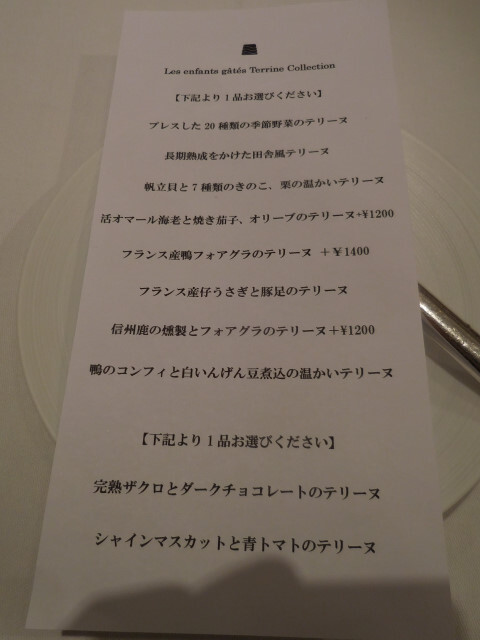 Les enfants gâtés Terrine Collection
【下記より1品お選びください】
プレスした20種類の季節野菜のテリーヌ
長期熟成をかけた田舎風テリーヌ
帆立貝と7種類のきのこ、栗の温かいテリーヌ
活オマール海老と焼き茄子、オリーブのテリーヌ+¥1200
フランス産鴨フォアグラのテリーヌ +¥1400
フランス産仔うさぎと豚足のテリーヌ
信州鹿の燻製とフォアグラのテリーヌ+¥1200
鴨のコンフィと白いんげん豆煮込の温かいテリーヌ
【下記より1品お選びください】
完熟ザクロとダークチョコレートのテリーヌ
シャインマスカットと青トマトのテリーヌ